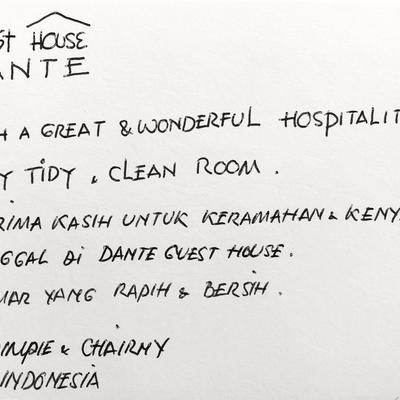 ST HOUSE
ANTE
H A GREAT & WONDERFUL HOSPITALIT
Y TIDY & CLEAN ROOM.
RIMA KASIH UNTUK KERAMAHAN & KENY
GGAL Di DANTE GUEST HOUSE.
MAR YANG RAPIH & BERSIH.
& CHAIRNY
INDONESIA